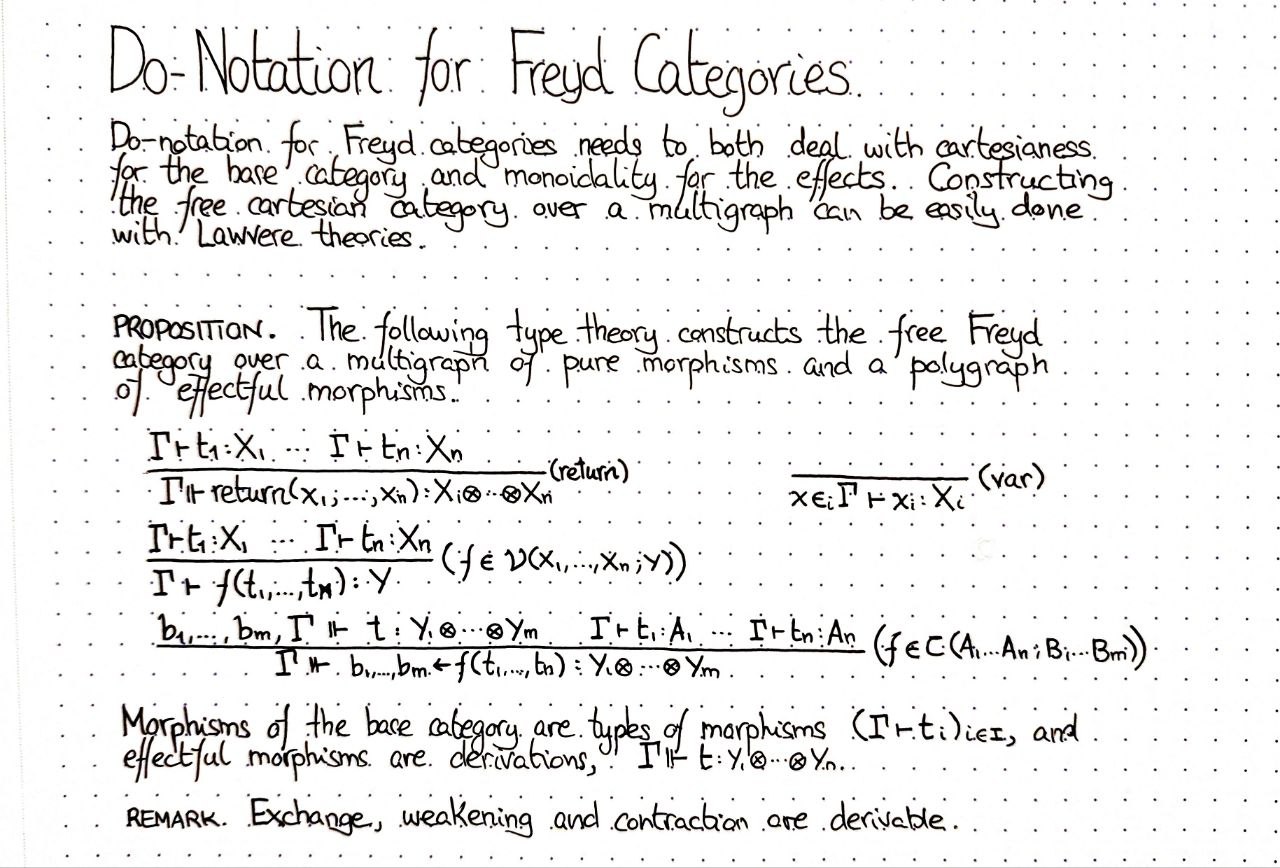 Do-Notation for Freyd Categories.
Do-notation for Freyd categories needs to both deal with cartesianess
for the base category and monoidality for the effects. Constructing
the free cartesian category over a multigraph can be easily done
with Lawvere theories.
PROPOSITION. The following type theory constructs the free Freyd
category over a multigraph of pure morphisms and a polygraph
of effectful morphisms.
Γ ⊢ t₁ : X₁ ... Γ ⊢ tn : Xn
(return)
Γ ⊩ return(x₁,...,xn) : X₁⊗...⊗Xn
(var)
x ∈ᵢ Γ ⊢ xᵢ : Xᵢ
Γ ⊢ t₁ : X₁ ... Γ ⊢ tn : Xn
(f ∈ V(X₁,...,Xn ; Y))
Γ ⊢ f(t₁,...,tn) : Y
b₁,...,bm, Γ ⊩ t : Y₁⊗...⊗Ym Γ ⊢ t₁ : A₁ ... Γ ⊢ tn : An
(f ∈ C(A₁...An ; B₁...Bm))
Γ ⊩ b₁,...,bm ← f(t₁,...,tn) : Y₁⊗...⊗Ym
Morphisms of the base category are types of morphisms (Γ ⊢ tᵢ)i∈I, and
effectful morphisms are derivations, Γ ⊩ t : Y₁⊗...⊗Yn.
REMARK. Exchange, weakening and contraction are derivable.